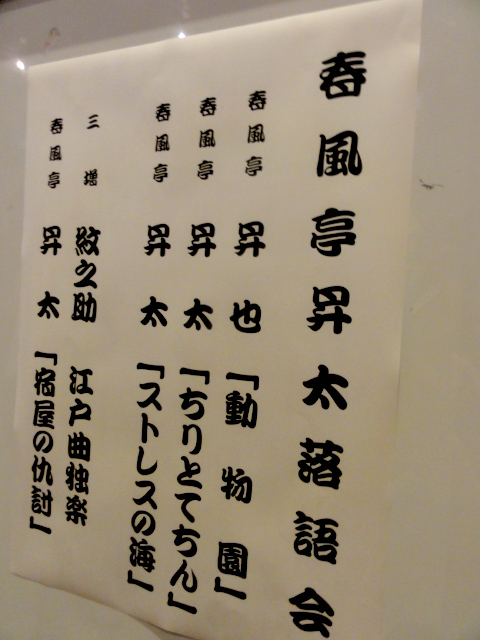 春風亭昇太落語会
春風亭 昇也 「動物園」
春風亭 昇太 「ちりとてちん」
春風亭 昇太 「ストレスの海」
三増 紋之助 江戸曲独楽
春風亭 昇太 「宿屋の仇討」